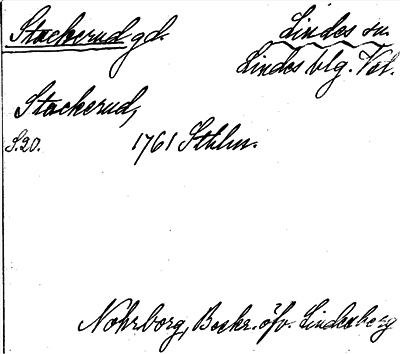 Stackerud gd.
Lindes sn.
Lindes blg. Vstm.
Stackerud,
S.20. 1761 Sthlm.
Nohrborg, Beskr. öfv. Lindesberg